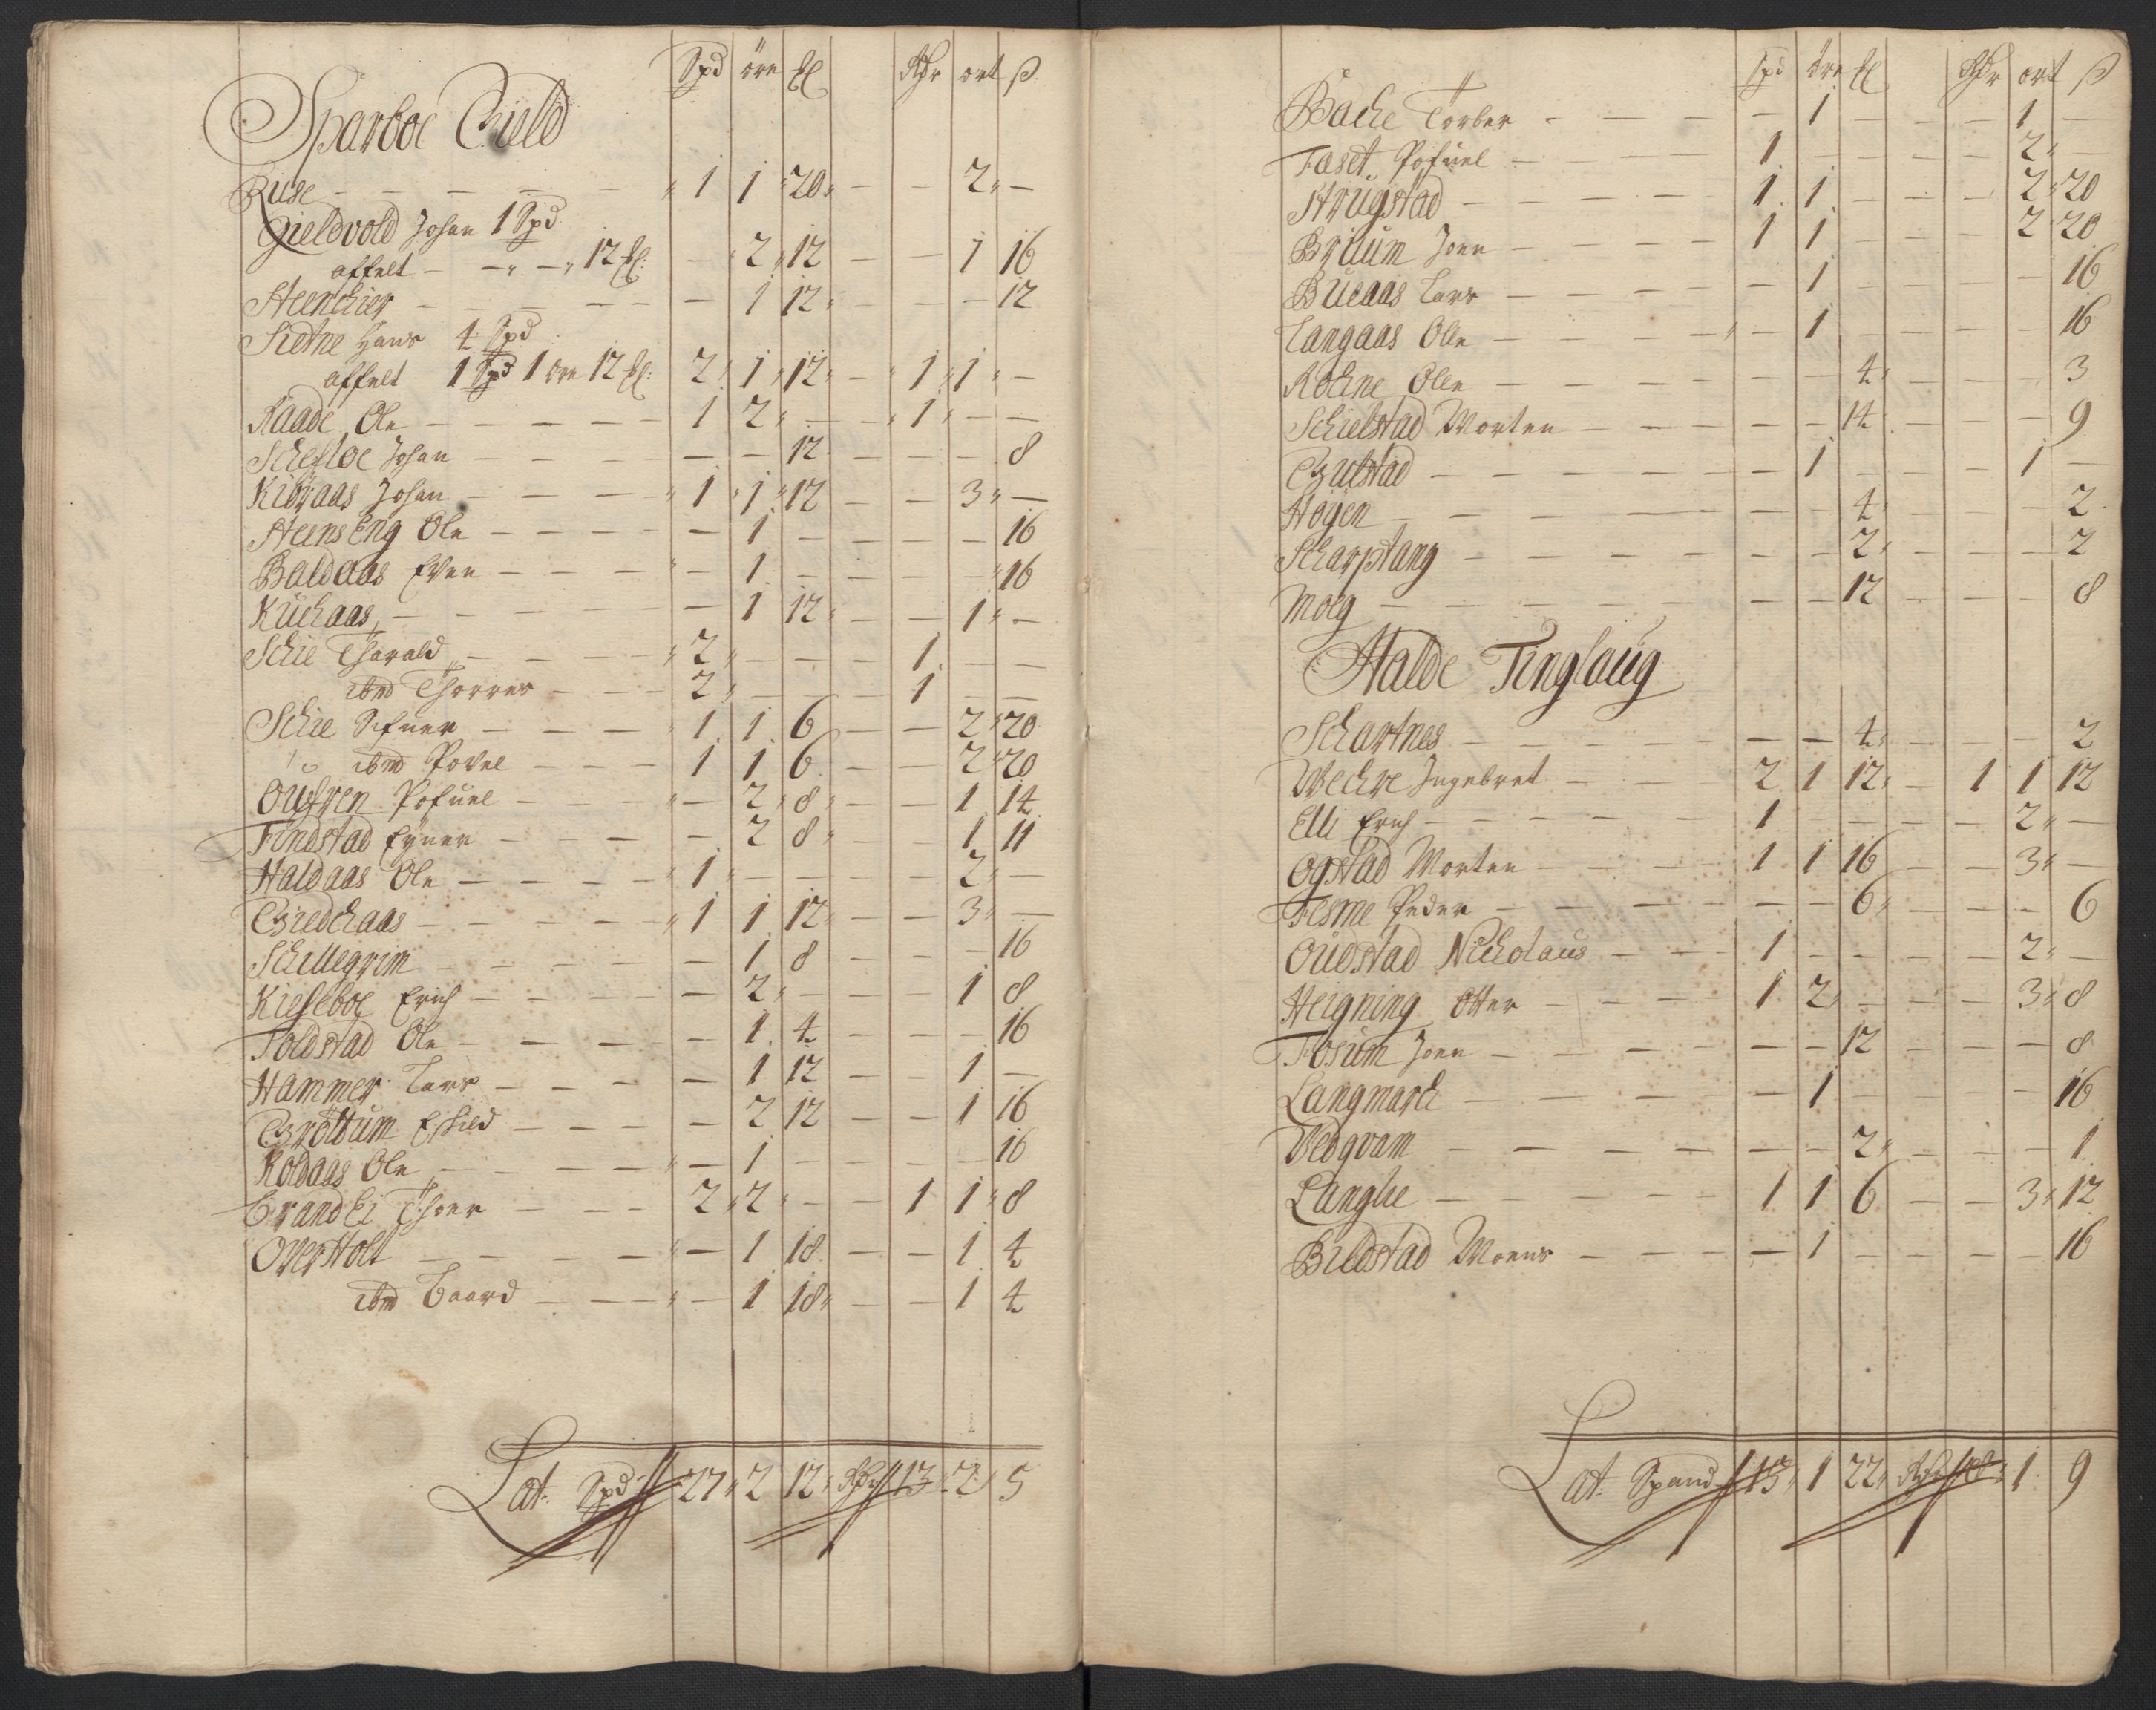 Spd öre Ml Rdr ort ß
Sparboe Gield
Ruse – – – – – 1 1 20 – – 2 –
Gieldvold Johan 1 Spd
affelt – – – 12 Ml: – 2 12 – – 1 16
Steenchier – – – – – 1 12 – – – 12
Siethe Hans 4 Spd
affelt 1 Spd 1 öre 12 Ml: 2 1 12 – 1 1 –
Raade Ole – – – – 1 2 – – 1 – –
Schefloe Johan – – – – – 12 – – – 8
Kibraas Johan – – – 1 1 12 – – 3 –
Steens Eng Ole – – – – – 1 – – – – 16
Baldaas Even – – – – 1 – – – – 16
Kuchaas – – – – 1 12 – – 1 –
Schie Tharald – – – – 2 – – – 1 – –
ibm Thorres – – – 2 – – – 1 – –
Schie Sifuer – – – 1 1 6 – – 2 20
ibm Povel – – – 1 1 6 – – 2 20
Ouhren Pofuel – – – – 2 8 – – 1 14
Findstad Eyner – – – – 2 8 – – 1 11
Haldaas Ole – – – – 1 – – – – 2 –
Gredchaas – – – – 1 1 12 – – 3 –
Schellegrim – – – – – 1 8 – – – 16
Kiesleboe Erich – – – – – 2 – – – 1 8
Foldstad Ole – – – – – 1 4 – – – 16
Hammer Lars – – – – 1 12 – – 1 –
Grøttum Eskild – – – – – 2 12 – – 1 16
Roldaas Ole – – – – – 1 – – – – 16
Brandli Thoer – – – 2 2 – – 1 1 8
Overholt – – – – – 1 18 – – 1 4
ibm Baard – – – – 1 18 – – 1 4
Lat: Spd 27 2 12 Rdr 13 2 5
Spd öre Ml Rdr ort ß
Bache Torber – – – – – 1 – – – 1 –
Foset Pofuel – – – 1 – – – – 2 –
Strugstad – – – – 1 1 – – – 2 20
Bruum Joen – – – – 1 1 – – – 2 20
Bueaas Lars – – – – – 1 – – – – 16
Langaas Ole – – – – – 1 – – – – 16
Rohne Olle – – – – – – 4 – – – 3
Schielstad Morten – – – – – 14 – – – 9
Gulstad – – – – – – 1 – – – 1 –
Høyen – – – – – – 4 – – – 2
Scharptang – – – – – – 2 – – – 2
Moeg – – – – – – – 12 – – – 8
Stalde Tinglaug
Schartnes – – – – – – 4 – – – 2
Wechre Ingebret – – 2 1 12 – 1 1 12
Elli Erich – – – – – 1 – – – – 2 –
Ogstad Morten – – – 1 1 16 – – 3 –
Fesme Peder – – – – – – 6 – – – 6
Oudstad Nicholaus – – 1 – – – – 2 –
Heigning Otter – – – – 1 2 – – – 3 8
Fosum Joen – – – – – – 12 – – – 8
Langmarch – – – – – 1 – – – – 16
Vedqvam – – – – – – 2 – – – 1
Langlie – – – – – 1 1 6 – – 3 12
Bildstad Moens – – – – 1 – – – – 16
Lat: Spand 13 1 22 Rdr 1 9